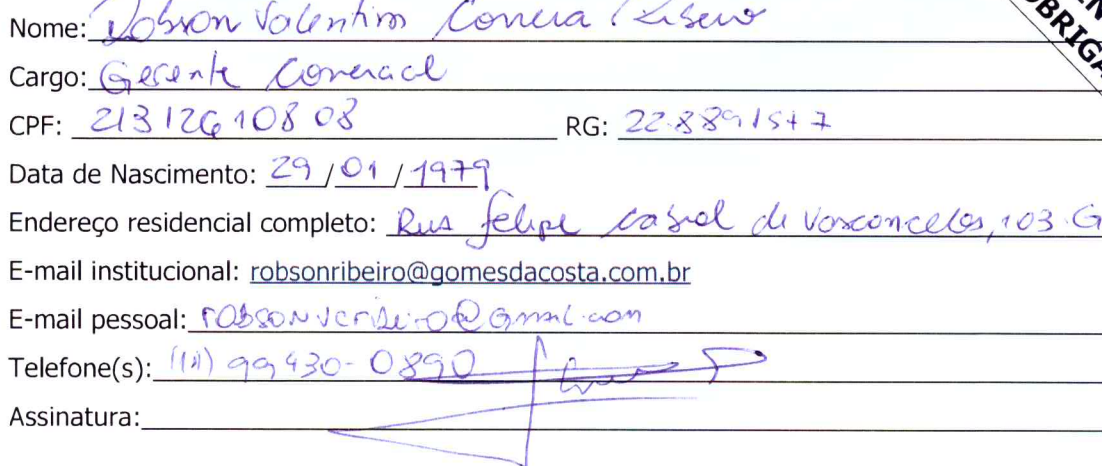 EN
OBRIGA
Nome: Robson Valentim Correia Ribeiro
Cargo: Gerente Comercial
CPF: 213126108 08 RG: 22.8891547
Data de Nascimento: 29 / 01 / 1979
Endereço residencial completo: Rua felipe cabral de vasconcelos, 103. G
E-mail institucional: robsonribeiro@gomesdacosta.com.br
E-mail pessoal: robsonvcribeiro@gmail.com
Telefone(s): (11) 99430-0890
Assinatura: